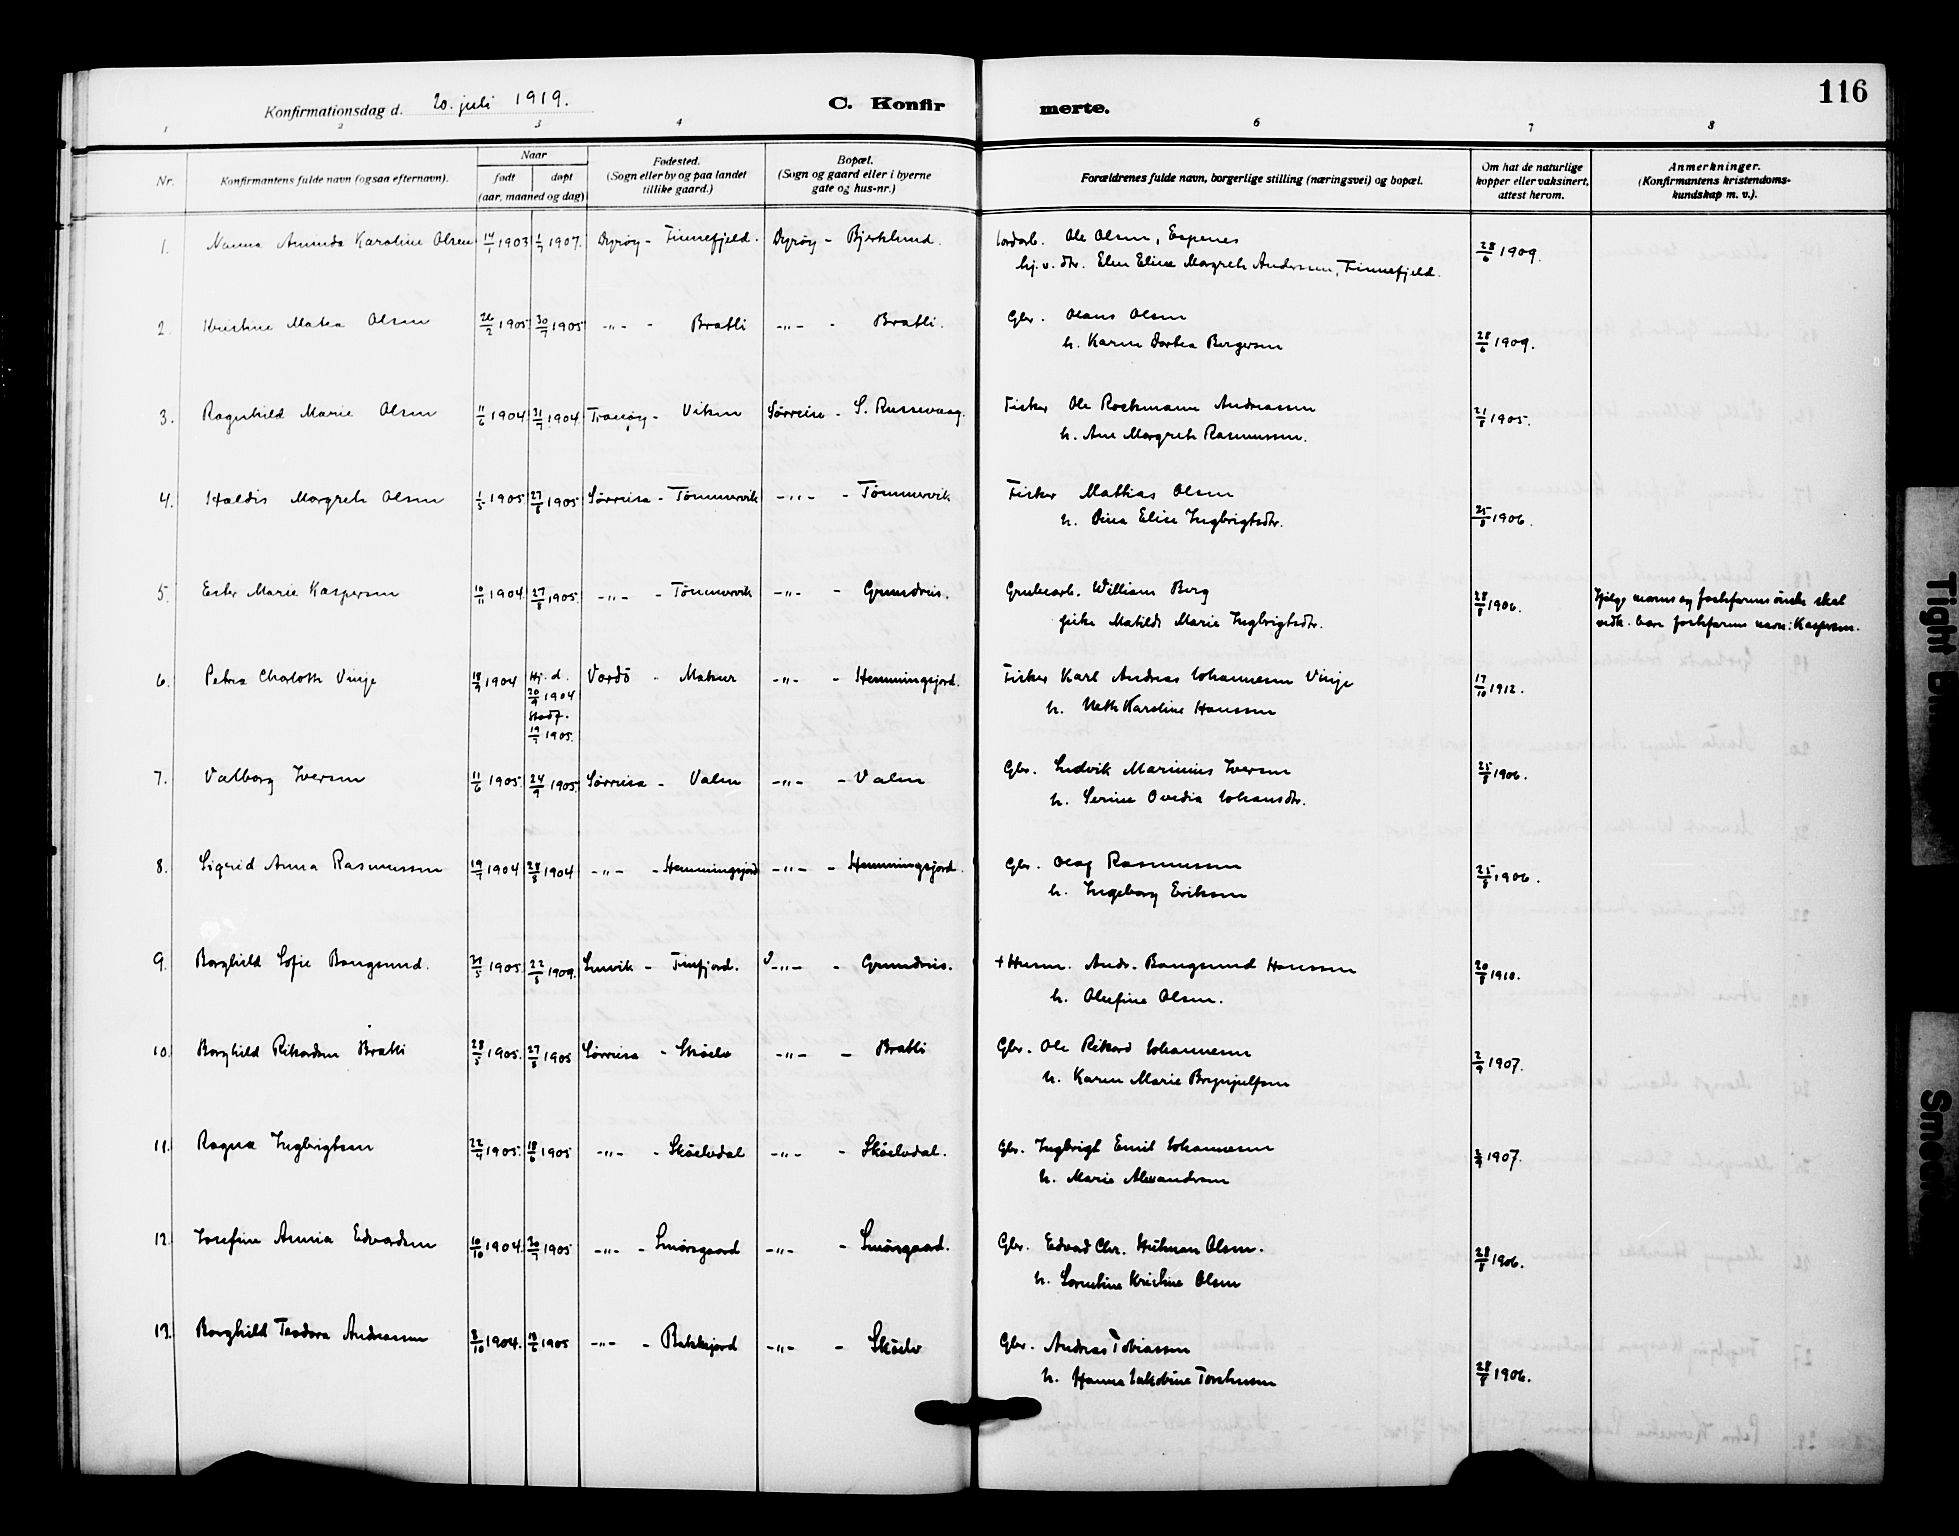 116
Konfirmationsdag d. 20. juli 1919.
C. Konfirmerte.
1 2 3 4 6 7 8
Nr. Konfirmantens fulde navn (ogsaa efternavn). Naar født døpt (aar, maaned og dag) Fødested. (Sogn eller by og paa landet tillike gaard.) Bopæl. (Sogn og gaard eller i byerne gate og hus-nr.) Forældrenes fulde navn, borgerlige stilling (næringsvei) og bopæl. Om hat de naturlige kopper eller vaksinert, attest herom. Anmerkninger. (Konfirmantens kristendomskundskap m. v.).
1. Nanna Amanda Karoline Olsen 14/1 1903 1/7 1907. Dyrøy - Finnefjeld. Dyrøy - Bjerklund. Ole Olsen, Espenes 28/6 1909.
hj. v. dtr. Elen Elise Margreth Andersen, Finnefjeld.
2. Kristine Matea Olsen 26/2 1905 30/7 1905 -"- - Bratli -"- - Bratli. Gbr. Olaus Olsen
h. Karen Dortea Bergersen 28/6 1909.
3. Ragnhild Marie Olsen 11/6 1904 31/7 1904. Tranøy - Viken Sørreise - S. Russevaag. Fisker Ole Rochmann Andreassen 21/8 1905.
h. Ane Margreth Rasmussen.
4. Haldis Margreth Olsen 1/5 1905 27/8 1905 Sørreisa - Tømmervik -"- - Tømmervik Fisker Mathias Olsen
h. Dina Elise Ingbrigtsdtr. 25/8 1906.
5. Ester Marie Kaspersen 10/11 1904. 27/8 1905. -"- - Tømmervik -"- - Grundvis. Grubearb. William Berg 28/8 1906.
pike Matilde Marie Ingbrigtsdtr.
6. Petra Charlotte Vinje 18/9 1904 Hj. d. 20/9 1904 stadf. 19/7 1905. Vardö - Makur -"- - Hemmingsjord. Fisker Karl Andreas Johannesen Vinje 17/10 1912.
h. Karoline Hanssen
7. Valborg Iversen 11/6 1905. 24/9 1905. Sørreisa - Valen -"- - Valen Gbr. Ludvik Marinius Iversen 25/8 1906.
h. Serine Ovedia Johansdtr.
8. Sigrid Anna Rasmussen 19/7 1904 28/8 1904 -"- - Hemmingsjord -"- - Hemmingsjord. Gbr. Olaf Rasmussen 25/8 1906.
h. Ingeborg Eriksen
9. Borghild Sofie Bangsund. 31/5 1905. 22/8 1909. Lenvik - Finfjord. -"- - Grundvis. + Husm. Andr. Bangsund Hanssen 20/8 1910.
h. Olufine Olsen.
10. Borghild Rikardsen Bratli 28/5 1905. 27/8 1905 Sørreisa - Skøelv -"- - Bratli Gbr. Ole Rikard Johannesen 2/9 1907.
h. Karen Marie Brynjulfsen
11. Ragna Ingbrigtsen 22/4 1905. 18/6 1905 -"- - Skøelvdal -"- - Skøelvdal. Gbr. Ingbrigt Emil Johannesen 2/9 1907.
h. Marie Alexandersen
12. Josefine Annia Edvardsen 10/10 1904. 30/7 1905 -"- - Smörsgaard -"- - Smörsgaard. Gbr. Edvard Chr. Hilman Olsen. 28/8 1906.
h. Kristine Olsen
13. Borghild Teodora Andreassen 3/10 1904. 18/6 1905 -"- - Bakkejord -"- - Skøelv Gbr. Andreas Tobiassen
h. Hanna Jakobine Torstensen 28/8 1906.